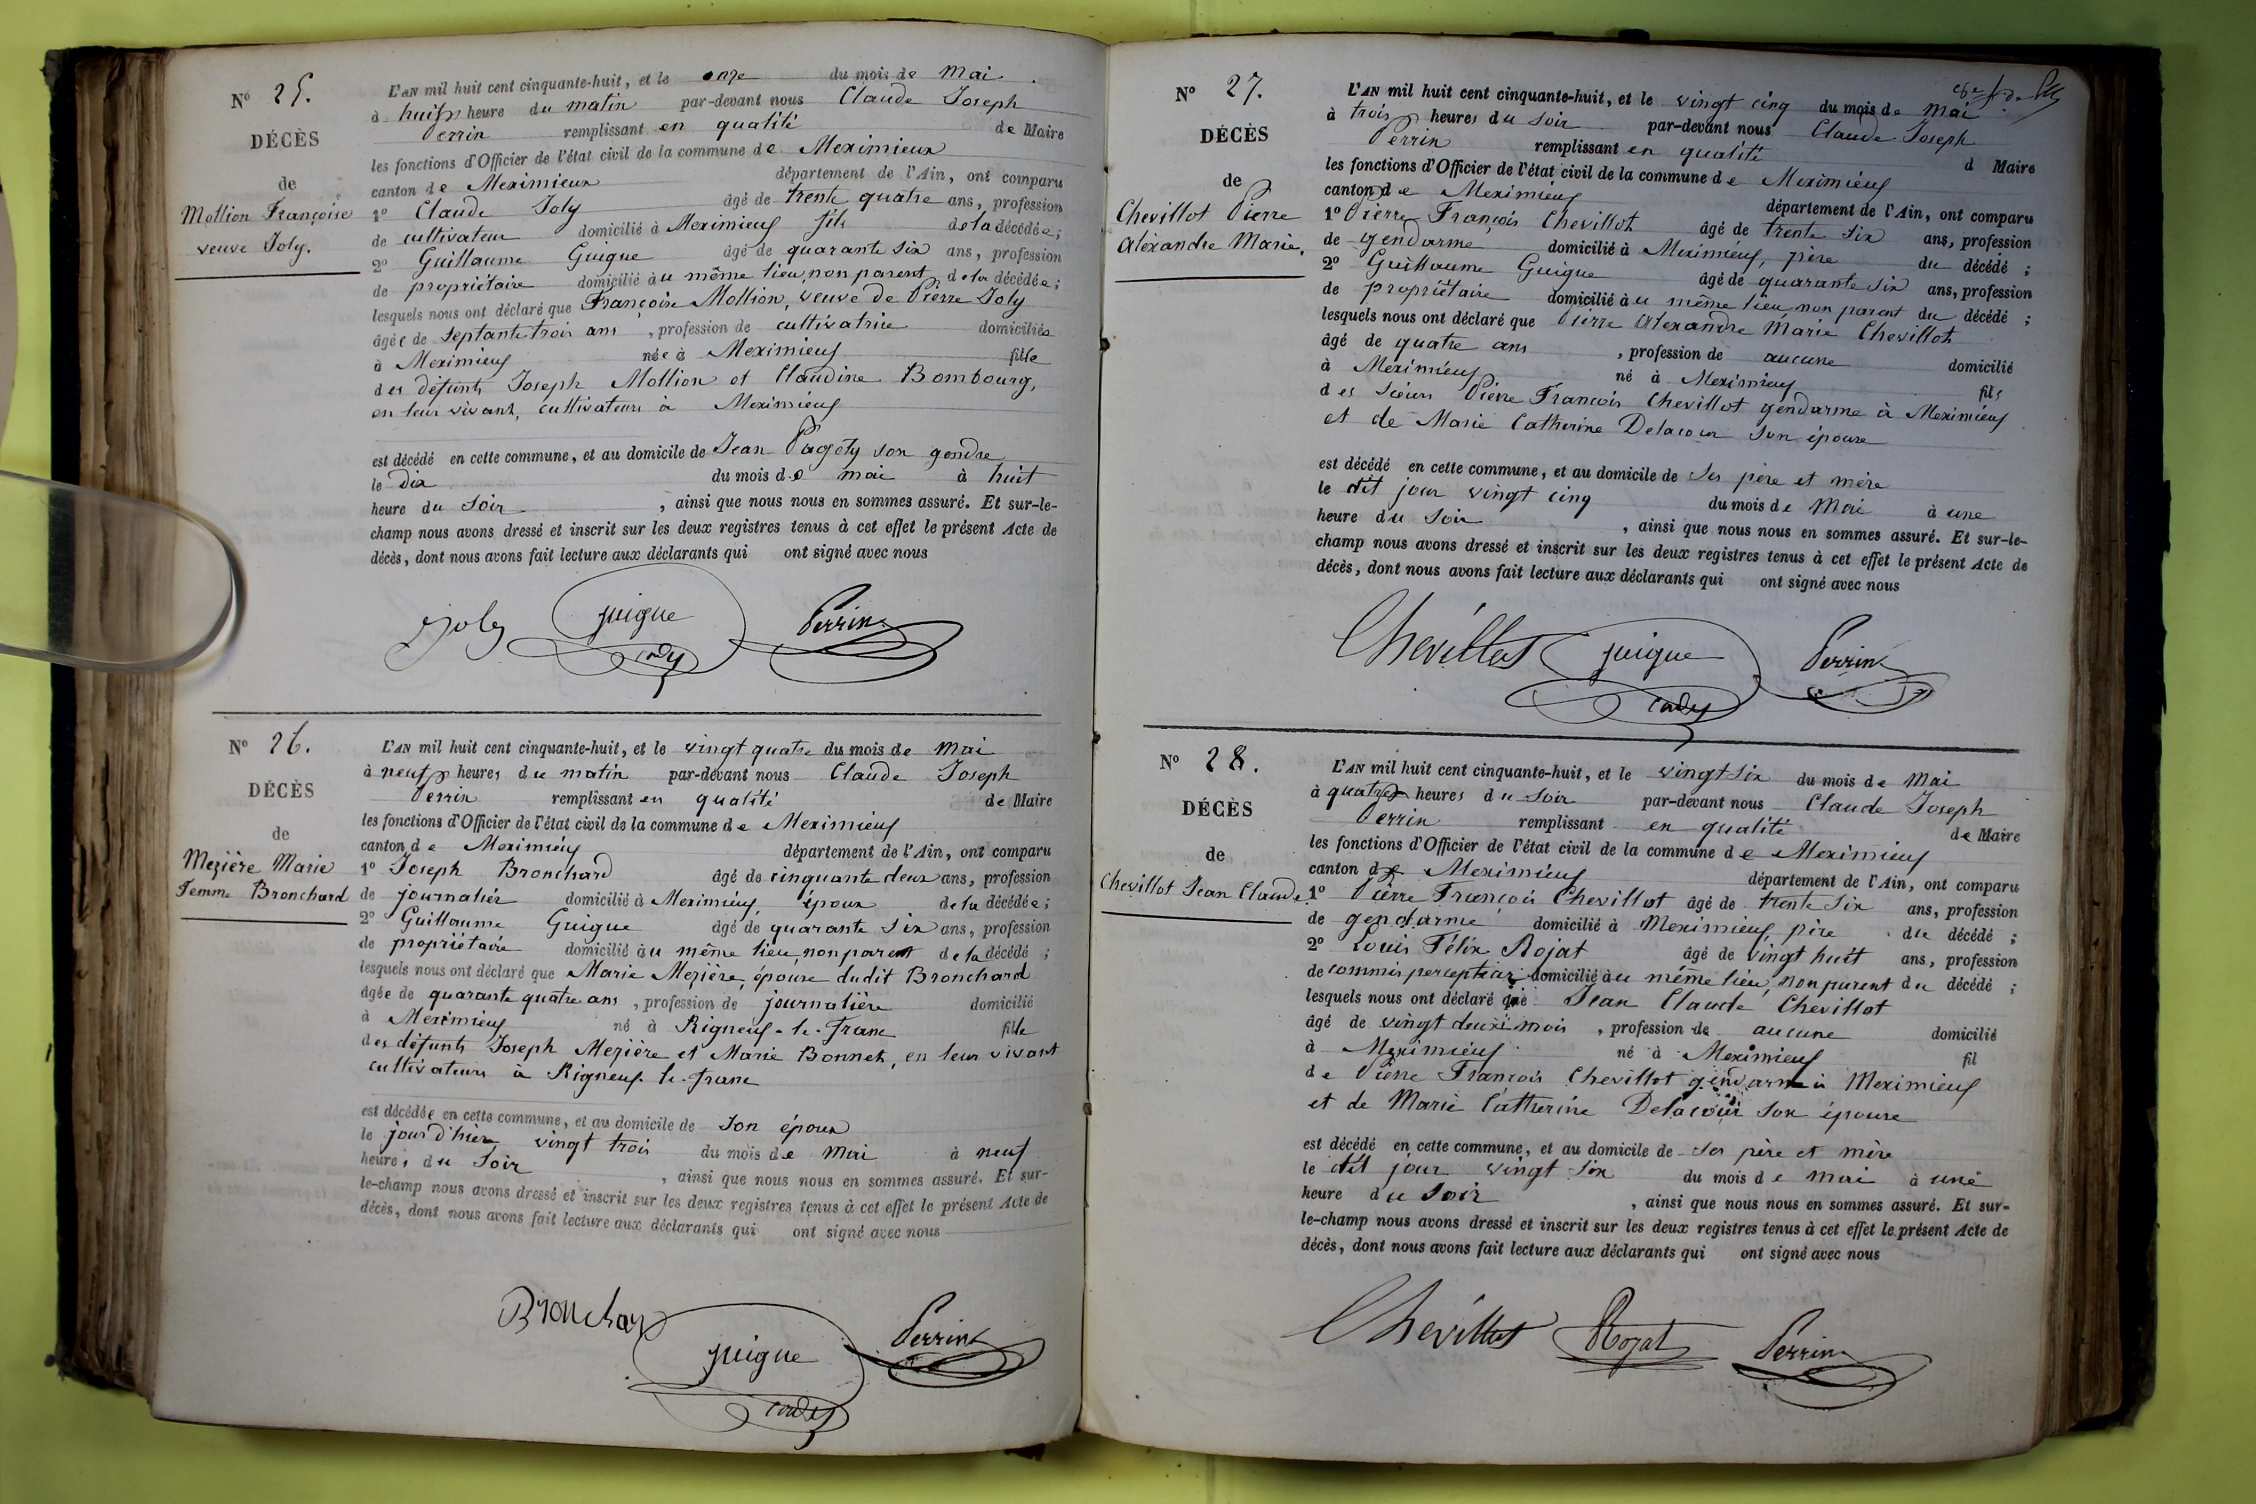 N° 25.
DÉCÈS
de
Mollion Françoise
veuve Joly.
L'AN mil huit cent cinquante-huit, et le onze du mois de Mai
à huit heure du matin par-devant nous Claude Joseph
Perrin remplissant en qualité de Maire
les fonctions d'Officier de l'état civil de la commune de Meximieux
canton de Meximieux département de l'Ain, ont comparu
1° Claude Joly âgé de trente quatre ans, profession
de cultivateur domicilié à Meximieux fils de la décédée;
2° Guillaume Guigue âgé de quarante six ans, profession
de propriétaire domicilié au même lieu, non parent de la décédée;
lesquels nous ont déclaré que Françoise Mollion, veuve de Pierre Joly
âgée de septante trois ans, profession de cultivatrice domiciliée
à Meximieux née à Meximieux fille
des défunts Joseph Mollion et Claudine Bombourg,
en leur vivant, cultivateurs à Meximieux
est décédé en cette commune, et au domicile de Jean Pagety son gendre
le dix du mois de mai à huit
heure du Soir, ainsi que nous nous en sommes assuré. Et sur-le-
champ nous avons dressé et inscrit sur les deux registres tenus à cet effet le présent Acte de
décès, dont nous avons fait lecture aux déclarants qui ont signé avec nous
Joly Guigue Perrin
N° 26.
DÉCÈS
de
Mezière Marie
femme Bronchard
L'AN mil huit cent cinquante-huit, et le vingt quatre du mois de Mai
à neuf heures du matin par-devant nous Claude Joseph
Perrin remplissant en qualité de Maire
les fonctions d'Officier de l'état civil de la commune de Meximieux
canton de Meximieux département de l'Ain, ont comparu
1° Joseph Bronchard âgé de cinquante deux ans, profession
de journalier domicilié à Meximieux, époux de la décédée;
2° Guillaume Guigue âgé de quarante Six ans, profession
de propriétaire domicilié au même lieu, non parent de la décédé;
lesquels nous ont déclaré que Marie Mezière, épouse dudit Bronchard
âgée de quarante quatre ans, profession de journalière domicilié
à Meximieux né à Rigneux-le-franc fille
des défunts Joseph Mezière et Marie Bonnet, en leur vivant
cultivateurs à Rigneux-le-franc
est décédée en cette commune, et au domicile de Son époux
le jour d'hier vingt trois du mois de Mai à neuf
heures du Soir, ainsi que nous nous en sommes assuré. Et sur-
le-champ nous avons dressé et inscrit sur les deux registres tenus à cet effet le présent Acte de
décès, dont nous avons fait lecture aux déclarants qui ont signé avec nous
Bronchard Guigue Perrin
N° 27.
DÉCÈS
de
Chevillot Pierre
Alexandre Marie.
L'AN mil huit cent cinquante-huit, et le vingt cinq du mois de Mai
à trois heures du Soir par-devant nous Claude Joseph
Perrin remplissant en qualité d Maire
les fonctions d'Officier de l'état civil de la commune de Meximieux
canton de Meximieux département de l'Ain, ont comparu
1° Pierre François Chevillot âgé de trente six ans, profession
de gendarme domicilié à Meximieux, père du décédé;
2° Guillaume Guigue âgé de quarante six ans, profession
de propriétaire domicilié au même lieu non parent du décédé;
lesquels nous ont déclaré que Pierre Alexandre Marie Chevillot
âgé de quatre ans, profession de aucune domicilié
à Meximieux né à Meximieux fils
des Sieurs Pierre François Chevillot gendarme à Meximieux
et de Marie Catherine Delacour Son épouse
est décédé en cette commune, et au domicile de Ses père et mère
le dit jour vingt cinq du mois de Mai à une
heure du Soir, ainsi que nous nous en sommes assuré. Et sur-le-
champ nous avons dressé et inscrit sur les deux registres tenus à cet effet le présent Acte de
décès, dont nous avons fait lecture aux déclarants qui ont signé avec nous
Chevillot Guigue Perrin
N° 28.
DÉCÈS
de
Chevillot Jean Claude.
L'AN mil huit cent cinquante-huit, et le vingt six du mois de Mai
à quatre heures du Soir par-devant nous Claude Joseph
Perrin remplissant en qualité de Maire
les fonctions d'Officier de l'état civil de la commune de Meximieux
canton de Meximieux département de l'Ain, ont comparu
1° Pierre François Chevillot âgé de trente six ans, profession
de gendarme domicilié à Meximieux, père du décédé;
2° Louis Félix Rojat âgé de vingt huit ans, profession
de commis percepteur domicilié au même lieu, non parent du décédé;
lesquels nous ont déclaré que Jean Claude Chevillot
âgé de vingt deux mois, profession de aucune domicilié
à Meximieux né à Meximieux fil
de Pierre François Chevillot gendarme à Meximieux
et de Marie Catherine Delacour Son épouse
est décédé en cette commune, et au domicile de Ses père et mère
le dit jour vingt six du mois de mai à une
heure du Soir, ainsi que nous nous en sommes assuré. Et sur-
le-champ nous avons dressé et inscrit sur les deux registres tenus à cet effet le présent Acte de
décès, dont nous avons fait lecture aux déclarants qui ont signé avec nous
Chevillot Rojat Perrin